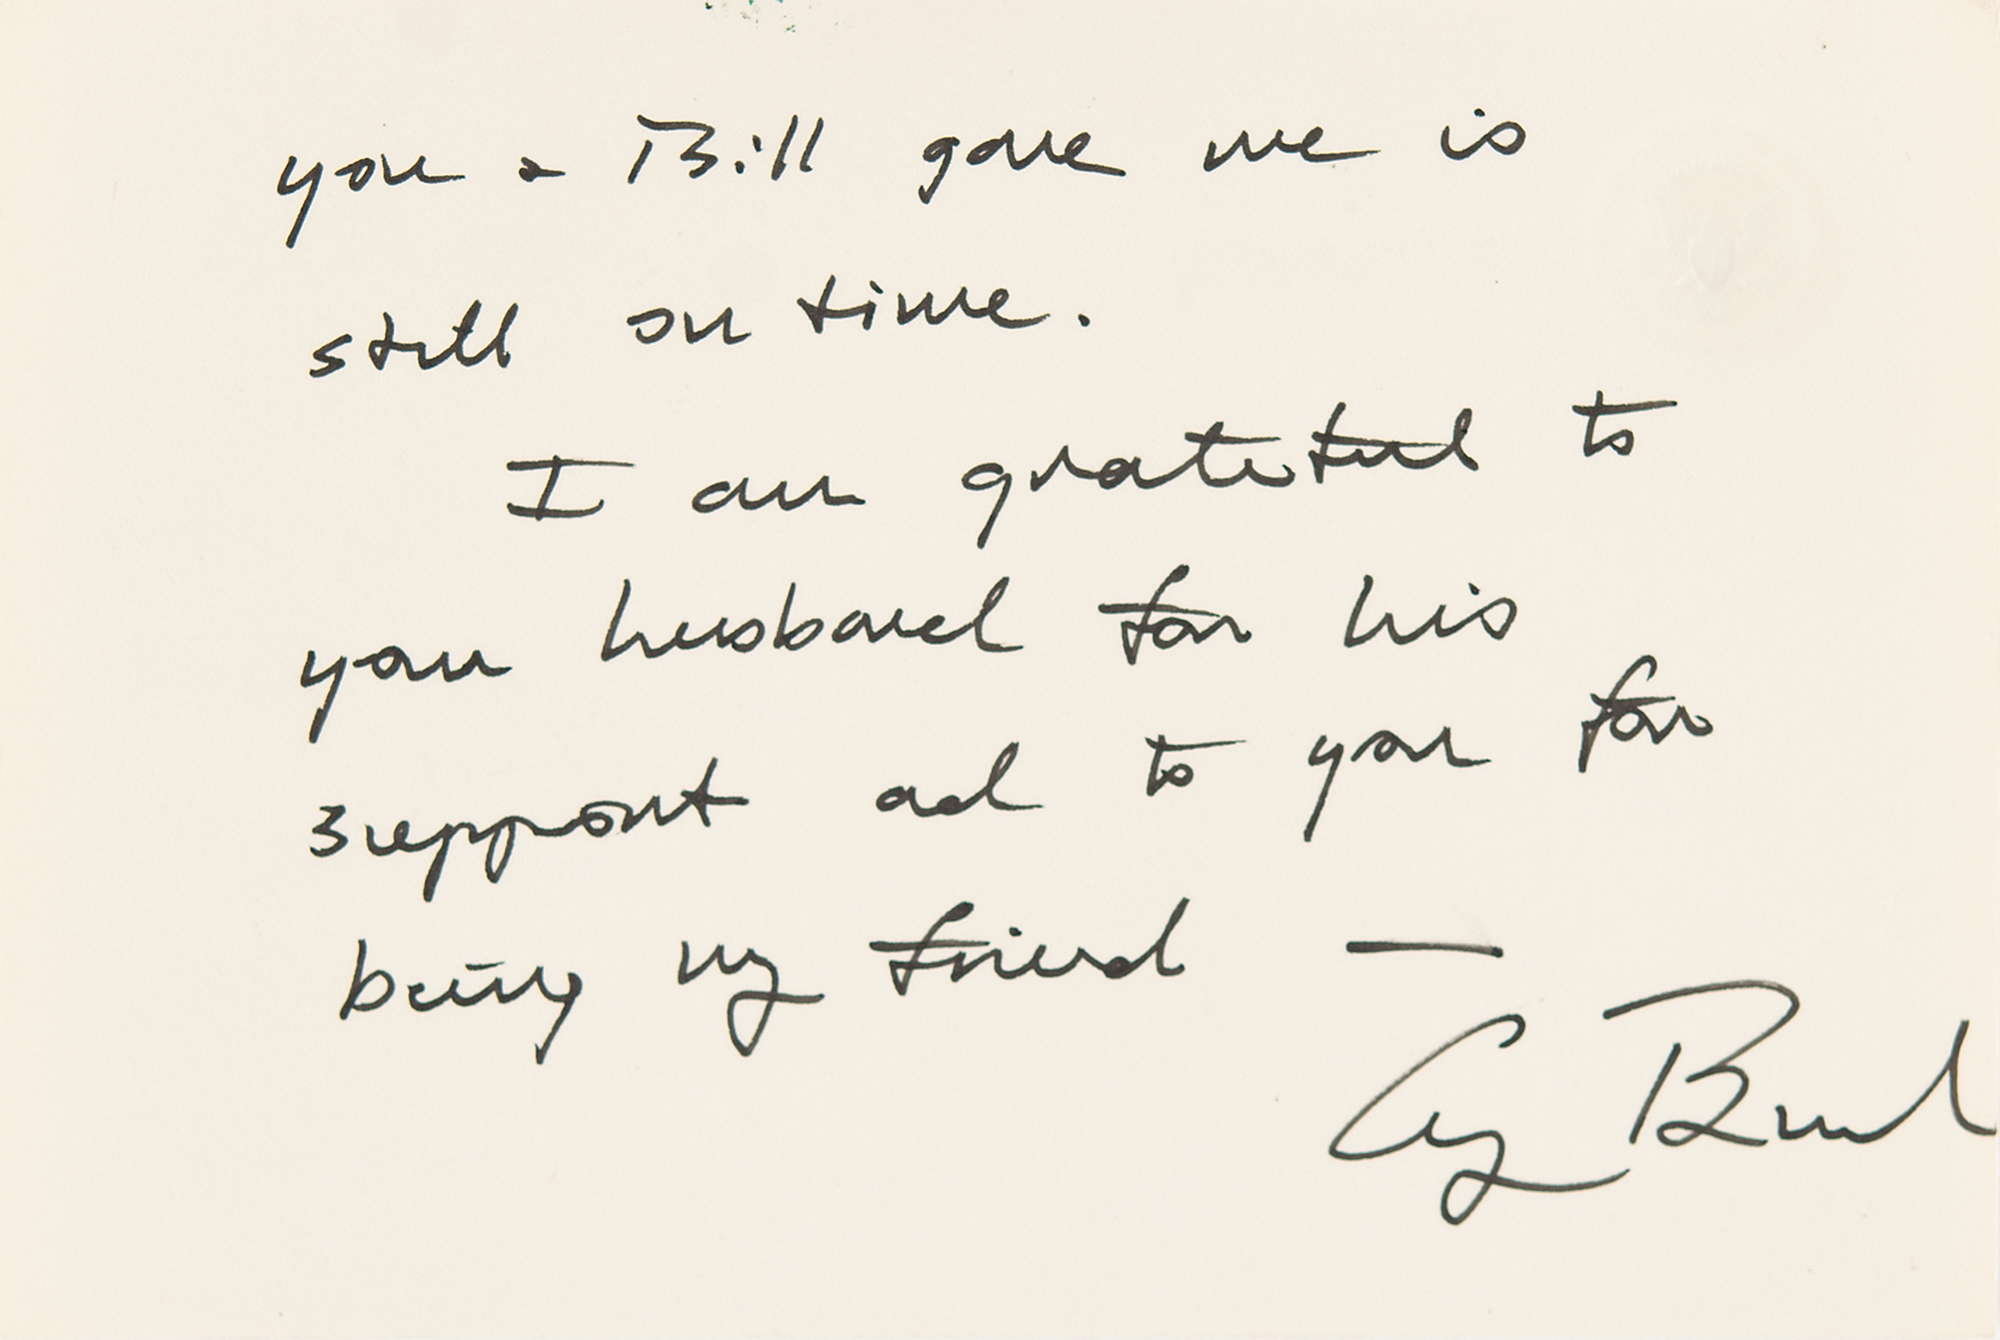 you & Bill gave me is
still on time.
I am grateful to
your husband for his
support and to you for
being my friend —
Gy Bush